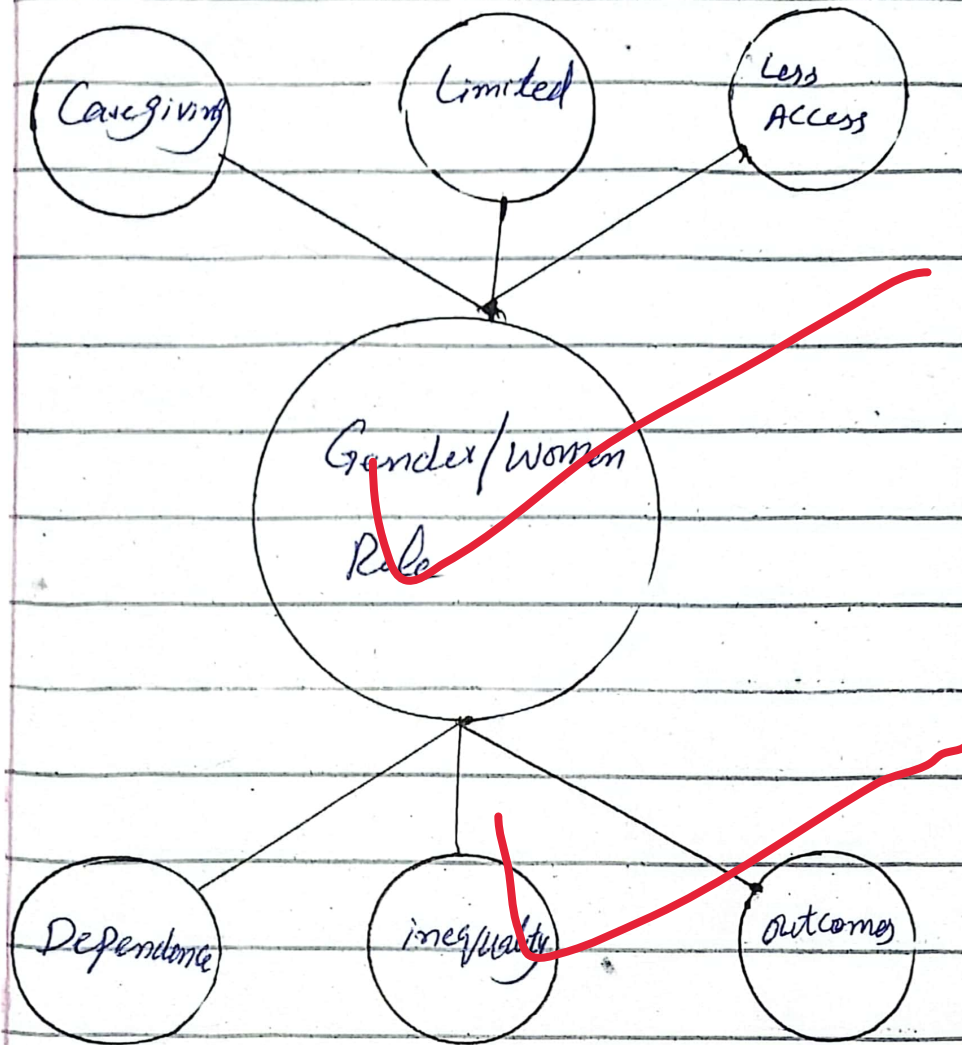 Caregiving
Limited
Less
Access
Gender/Women
Role
Dependence
inequality
outcomes